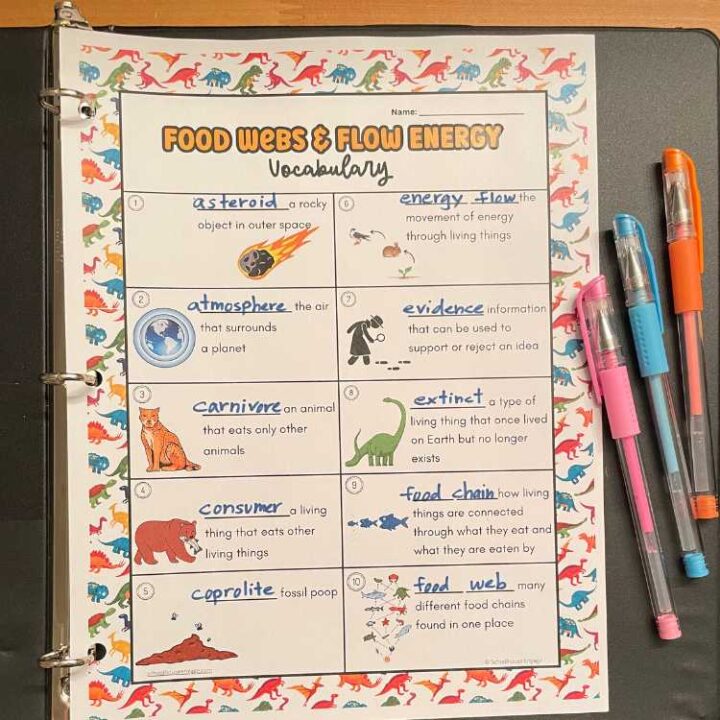 Name:
FOOD WEBS & FLOW ENERGY
Vocabulary
1
asteroid a rocky
object in outer space
2
atmosphere the air
that surrounds
a planet
3
carnivore an animal
that eats only other
animals
4
consumer a living
thing that eats other
living things
5
coprolite fossil poop
6
energy flow the
movement of energy
through living things
7
evidence information
that can be used to
support or reject an idea
8
extinct a type of
living thing that once lived
on Earth but no longer
exists
9
food chain how living
things are connected
through what they eat and
what they are eaten by
10
food web many
different food chains
found in one place